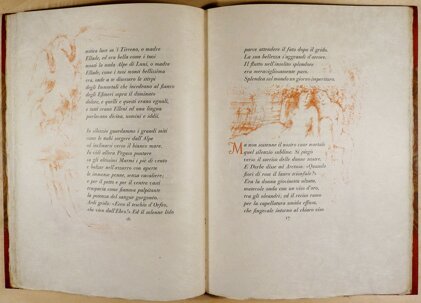 antica luce su 'l Tirreno, o madre
Ellade, ed era bella come i tuoi
monti la nuda Alpe di Luni, o madre
Ellade, come i tuoi monti bellissima
era, onde a te discorre le stirpi
degli Immortali che incedrano al fianco
degli Efimeri sopra il dominato
dolore, e quelle e questi erano eguali,
e tutt erano Elleni ed una lingua
parlavan divina, uomini e iddii.
In silenzio guardammo i grandi miti
come le nubi sorgere dall'Alpe
ed inclinarsi verso il bianco mare.
Io vidi allora Pegaso pontare
su gli altissimi Marmi i piè di vento
e balzar nell'azzurro con aperte
le immense penne, senza cavaliere;
e per il petto e per il ventre cavi
tempavia come fiamma palpitante
la potenza del sangue gorgonio.
Ardi gridò: «Ecco il teschio d'Orfeo,
che vien dall'Ebro!» Ed il solenne lido
16
parve attendere il fato dopo il grido.
La sua bellezza s'aggrandì d'orrore.
Il flutto nell'insolito splendore
era meravigliosamente puro.
Splendea sul mondo un giorno imperituro.
Ma non sostenne il nostro cuor mortale
quel silenzio sublime. Si piegò
verso il sorriso delle donne nostre.
E Derbe disse ad Aretusa: «Quando
fiorì di rose il lauro trionfale?»
Era la donna giovinetta alzata,
mutevole onda con un viso d'oro,
tra gli oleandri; ed il reciso ramo
per la capellatura umida effusa,
che fingevale intorno al chiaro viso
17